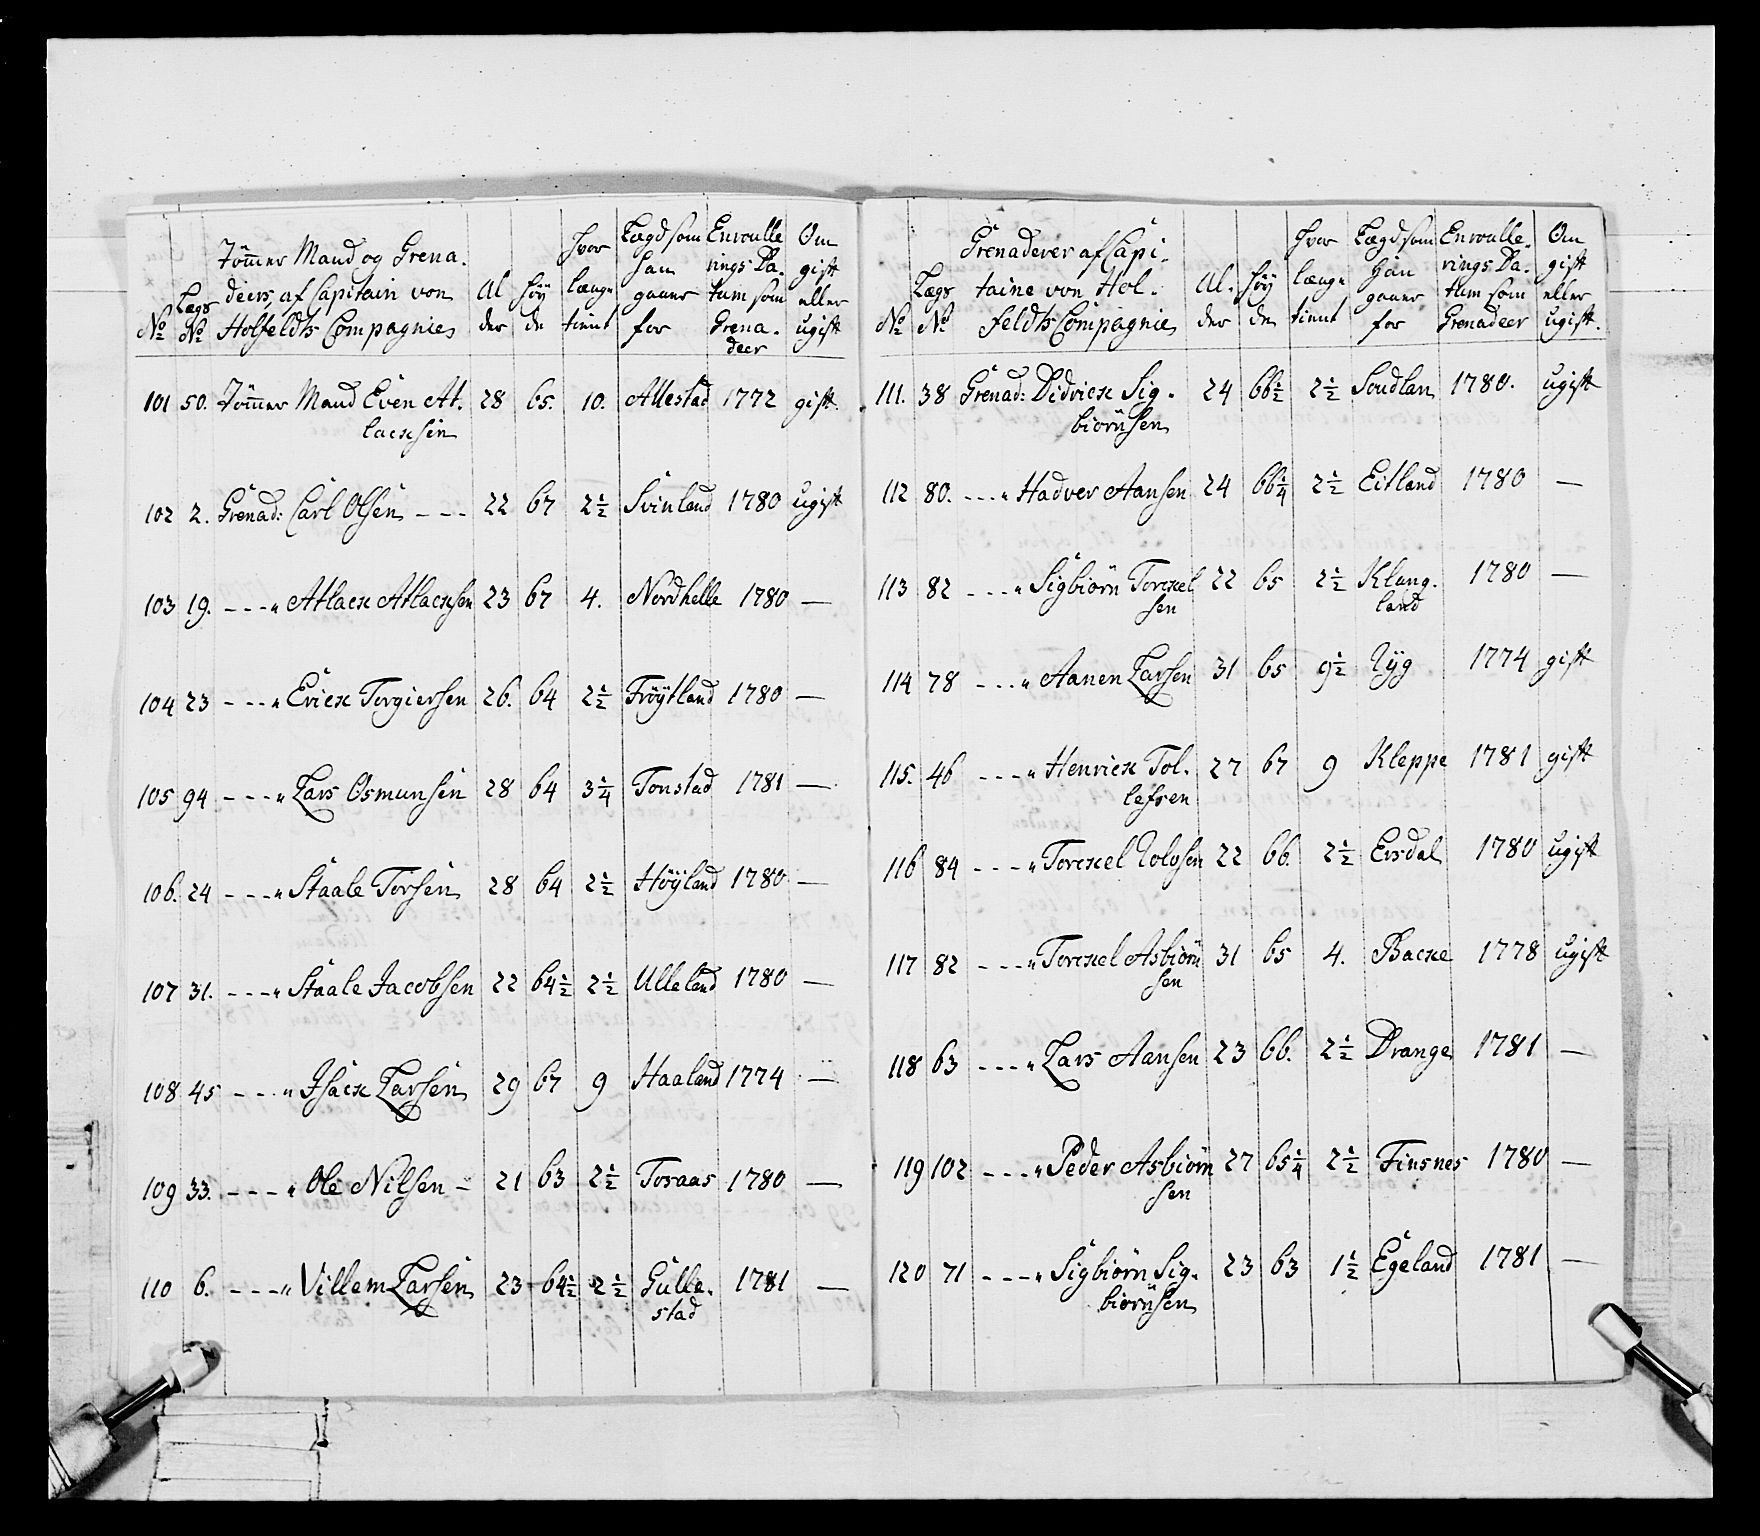 No Lægs No Tömmer Mand og Grenadeers af Capitain von Holfeldts Compagnie Alder Höyde hvor længe tient Lægd som han gaaer for Enroullerings Datum som Grenadeer Om gift eller ugift
101 50. Tömmer Mand Even At- 28 65. 10. Allestad 1772 gift.
lacksen
102 2. Grenad: Carl Olsen - - - 22 67 2½ Svinland 1780 ugift
103 19. - - - " Atlack Atlacksen 23 67 4. Nordhelle 1780 —
104 23 - - - " Erick Torgiersen 26. 64 2½ Fröytland 1780 —
105 94 - - - " Lars Osmunsen 28 64 3¼ Tonstad 1781 —
106. 24 - - - " Staale Torsen 28 64 2½ Höyland 1780 —
107 31. - - - " Staale Jacobsen 22 64½ 2½ Ulleland 1780 —
108 45 - - - " Isack Larsen 29 67 9 Haaland 1774 —
109 33. - - - " Ole Nilsen - 21 63 2½ Tosaas 1780 —
110 6. - - - " Villem Larsen 23 64½ 2½ Gulle- 1781 —
stad
No Lægs No Grenaderer af Capitaine von Holfeldts Compagnie Alder Höyde hvor længe tient Lægd som han gaaer for Enroullerings Datum som Grenadeer Om gift eller ugift.
111. 38 Grenad: Didrick Sig- 24 66½ 2½ Soudlan 1780. ugift
biörnsen
112 80. - - - " Hadver Aansen 24 66¼ 2½ Eitland 1780 —
113 82 - - - " Sigbiörn Torckel 22 65 2½ Klung- 1780 —
sen land
114 78 - - - " Aanen Larsen 31 65 9½ Ryg 1774 gift
115. 46 - - - " Henrick Tol- 27 67 9 Kleppe 1781 gift
lefsen
116 84 - - - " Torckel Rolvsen 22 66. 2½ Ersdal 1780 ugift
117 82 - - - " Torckel Asbiörn 31 65 4. Backe 1778 ugift
sen
118 63 - - - " Lars Aansen 23 66. 2½ Drange 1781 —
119 102 - - - " Peder Asbiörn 27 65¼ 2½ Finsnes 1780 —
sen
120 71 - - - " Sigbiörn Sig- 23 63 1½ Egeland 1781 —
biörnsen